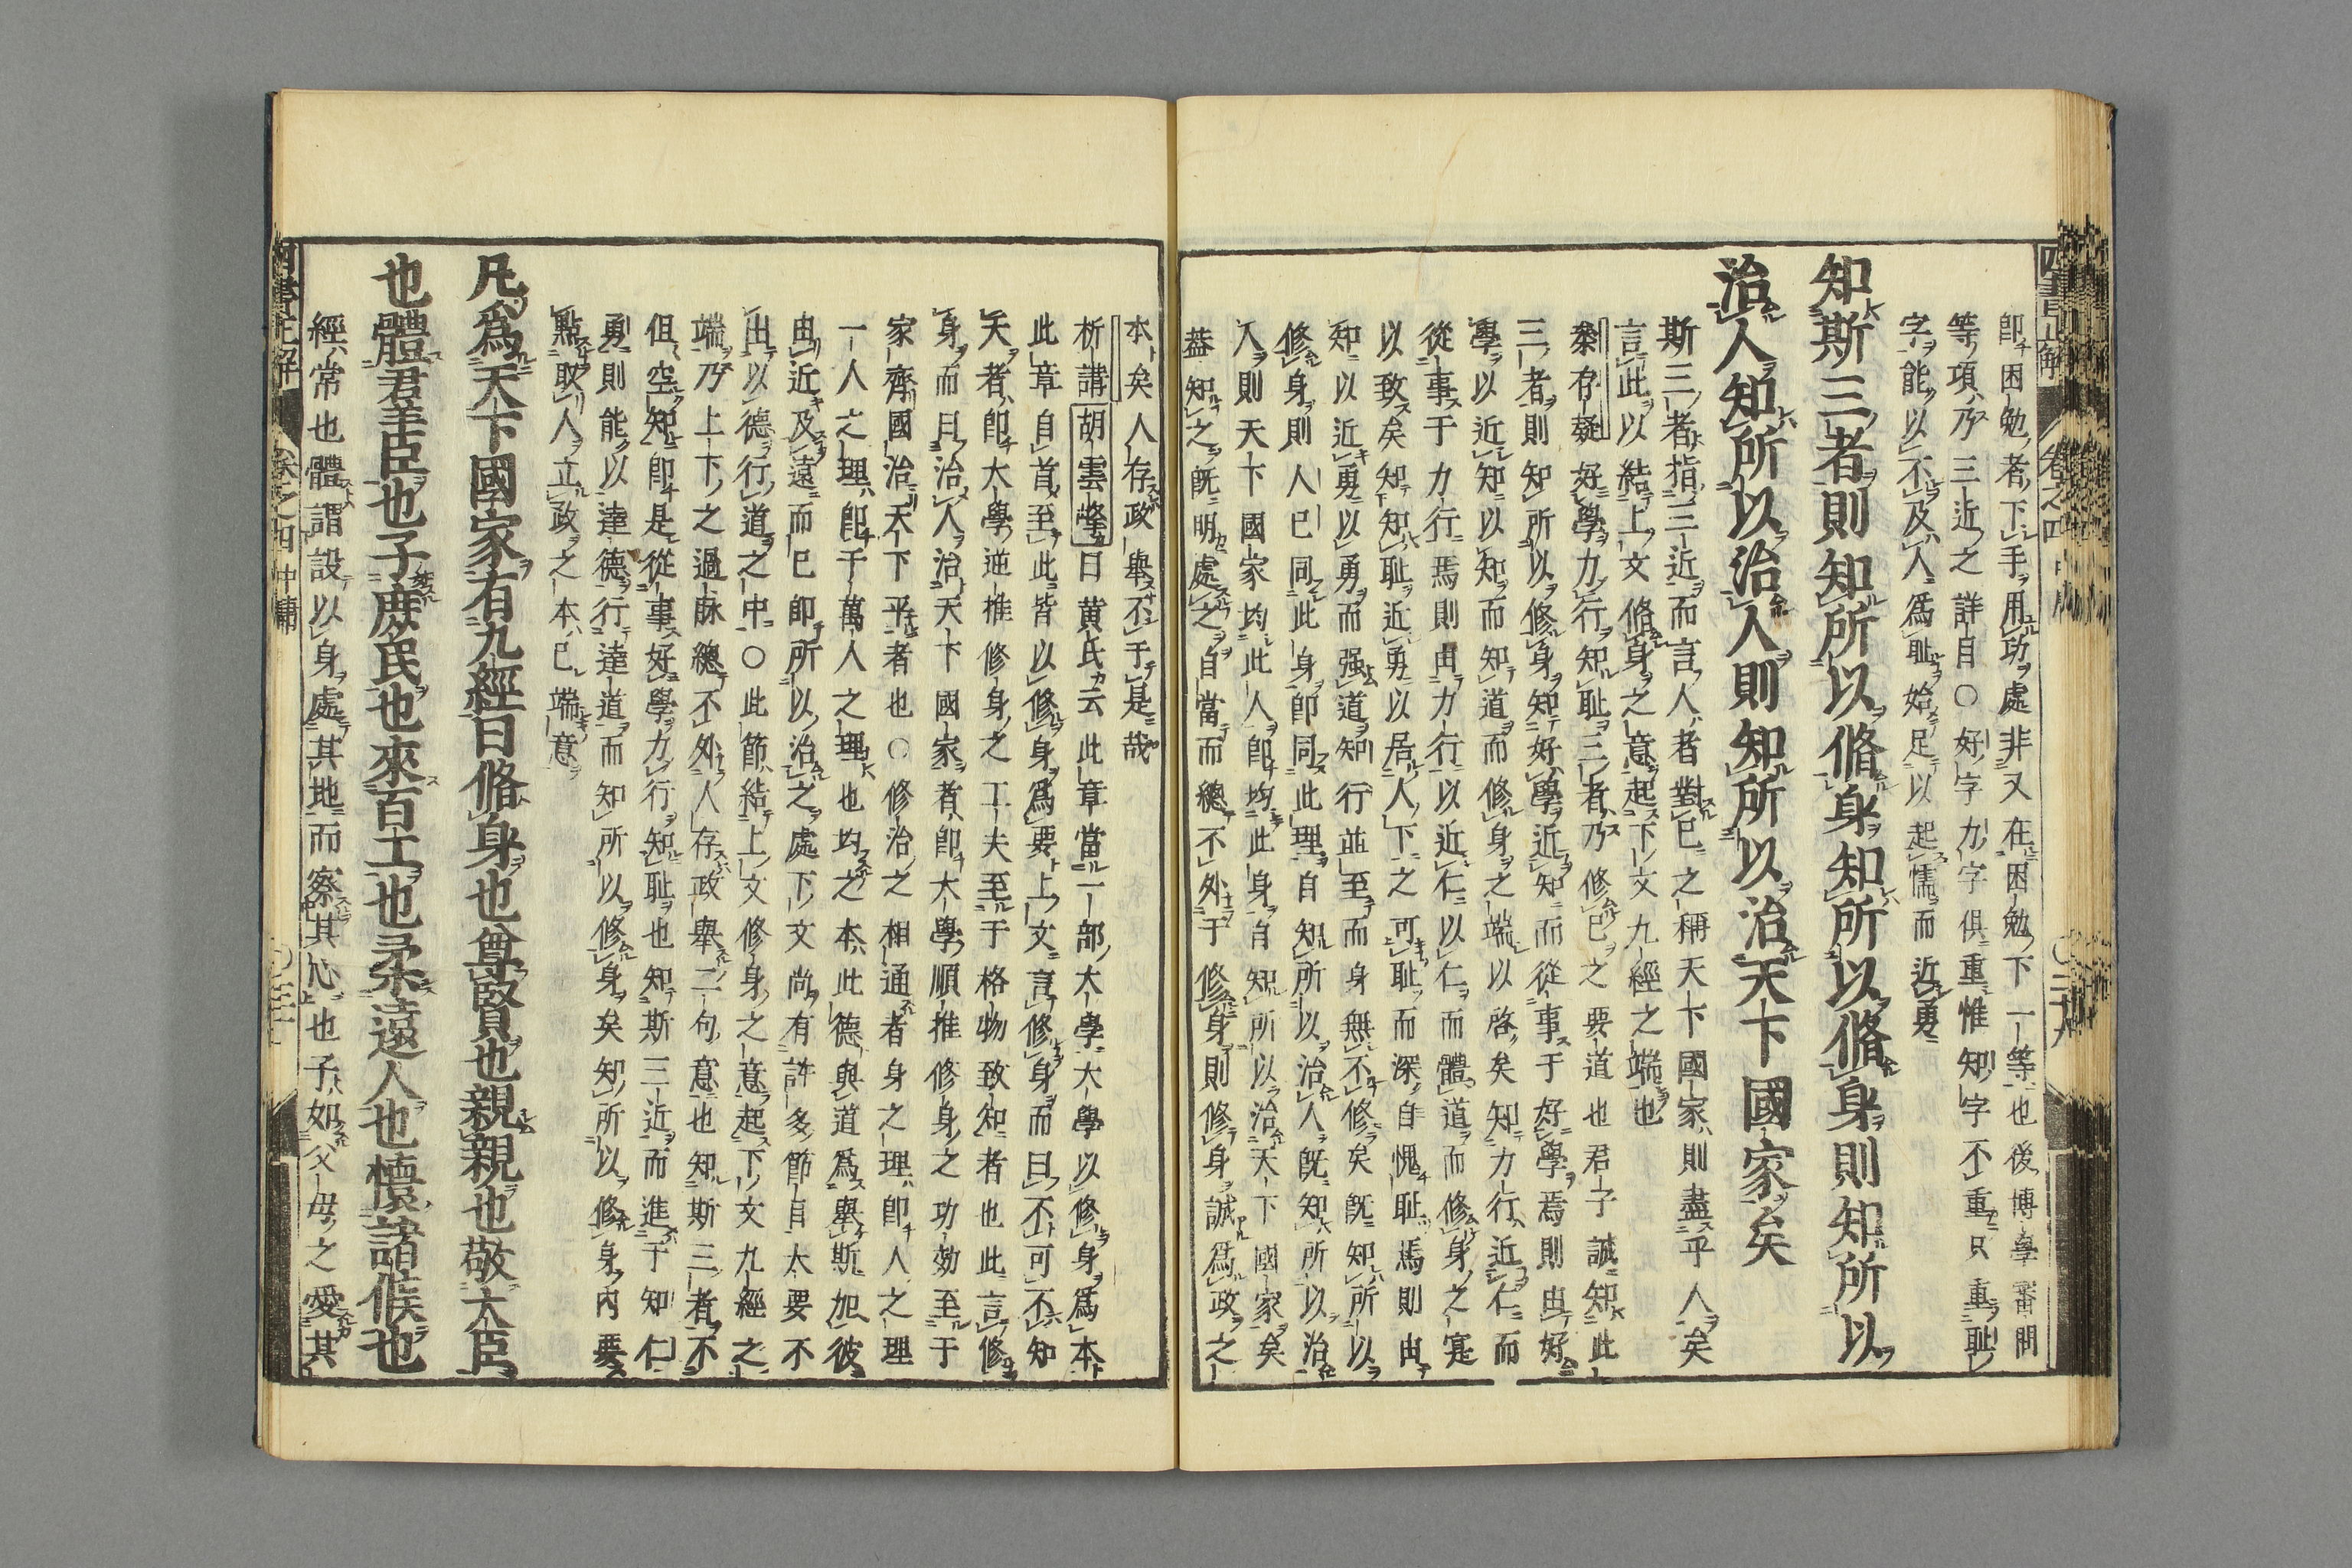 即困勉者下手用功處非又在困勉下一等也後博學審問
等項乃三近之詳自○好字力字俱重惟知字不重只重耻
字能以不及人爲耻始足以起懦而近勇
知斯三者則知所以脩身知所以脩身則知所以
治人知所以治人則知所以治天下國家矣
斯三者指三近而言人者對已之稱天下國家則盡乎人矣
言此以結上文脩身之意起下文九經之端也
蔡存疑好學力行知耻三者乃修已之要道也君子誠知此
三者則知所以修身知好學近知而從事于好學焉則由好
學以近知以知而知道而修身之端以啓矣知力行近仁而
從事于力行焉則由力行以近仁以仁而體道而修身之寔
以致矣知知耻近勇以居人下之可耻而深自愧耻焉則由
知以近勇以勇而强道知行並至而身無不修矣旣知所以
修身則人已同此身卽同此理自知所以治人旣知所以治
人則天下國家均此人卽均此身自知所以治天下國家矣
葢知之旣明處之自當而總不外于修身則修身誠爲政之
本矣人存政舉不于是哉
析講胡雲峰曰黃氏云此章當一部大學大學以修身爲本
此章自首至此皆以修身爲要上文言修身而曰不可不知
天者卽大學逆推修身之工夫至于格物致知者也此言修
身而曰治人治天下國家者卽大學順推修身之功効至于
家齊國治天下平者也○修治之相通者身之理卽人之理
一人之理卽千萬人之理也均之本此德與道爲舉斯加彼
由近及遠而已卽所以治之處下文尚有許多節目大要不
出以德行道之中○此節結上文修身之意起下文九經之
端乃上下之過脉總不外人存政舉二句意也知斯三者不
但空知卽是從事好學力行知耻也知斯三近而進于知仁
勇則能以達德行達道而知所以修身矣知所以修身內要
點取人立政之本已端意
凡爲天下國家有九經曰脩身也尊賢也親親也敬大臣
也體君羣臣也子庶民也來百工也柔遠人也懷諸侯也
經常也體謂設以身處其地而察其心也子如父母之愛其
四書正解 卷之四 中庸